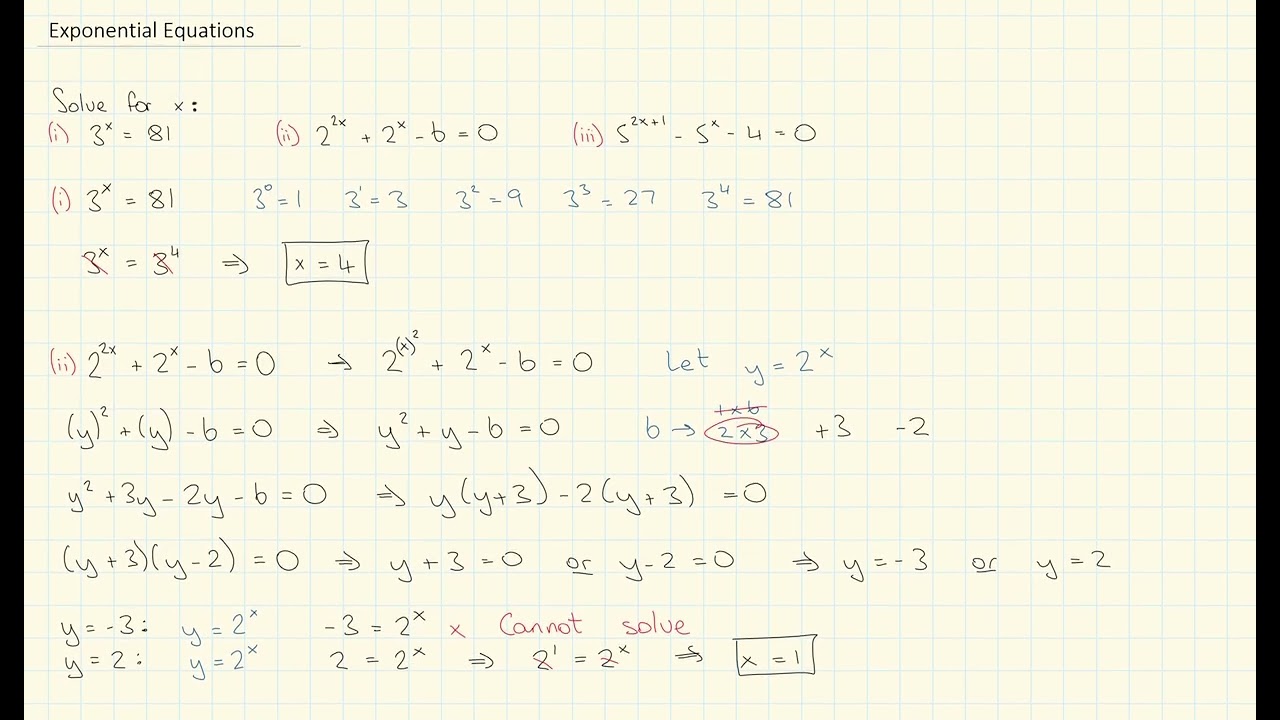 Exponential Equations
Solve for x:
(i) 3^x = 81 (ii) 2^2x + 2^x - 6 = 0 (iii) 5^2x+1 - 5^x - 4 = 0
(i) 3^x = 81 3^0 = 1 3^1 = 3 3^2 = 9 3^3 = 27 3^4 = 81
3^x = 3^4 ⇒ x = 4
(ii) 2^2x + 2^x - 6 = 0 → 2^(x)^2 + 2^x - 6 = 0 Let y = 2^x
(y)^2 + (y) - 6 = 0 ⇒ y^2 + y - 6 = 0 6 → 1 x 6 2 x 3 +3 -2
y^2 + 3y - 2y - 6 = 0 ⇒ y(y+3) - 2(y+3) = 0
(y+3)(y-2) = 0 ⇒ y + 3 = 0 or y - 2 = 0 ⇒ y = -3 or y = 2
y = -3: y = 2^x -3 = 2^x x Cannot solve
y = 2: y = 2^x 2 = 2^x ⇒ 2^1 = 2^x ⇒ x = 1